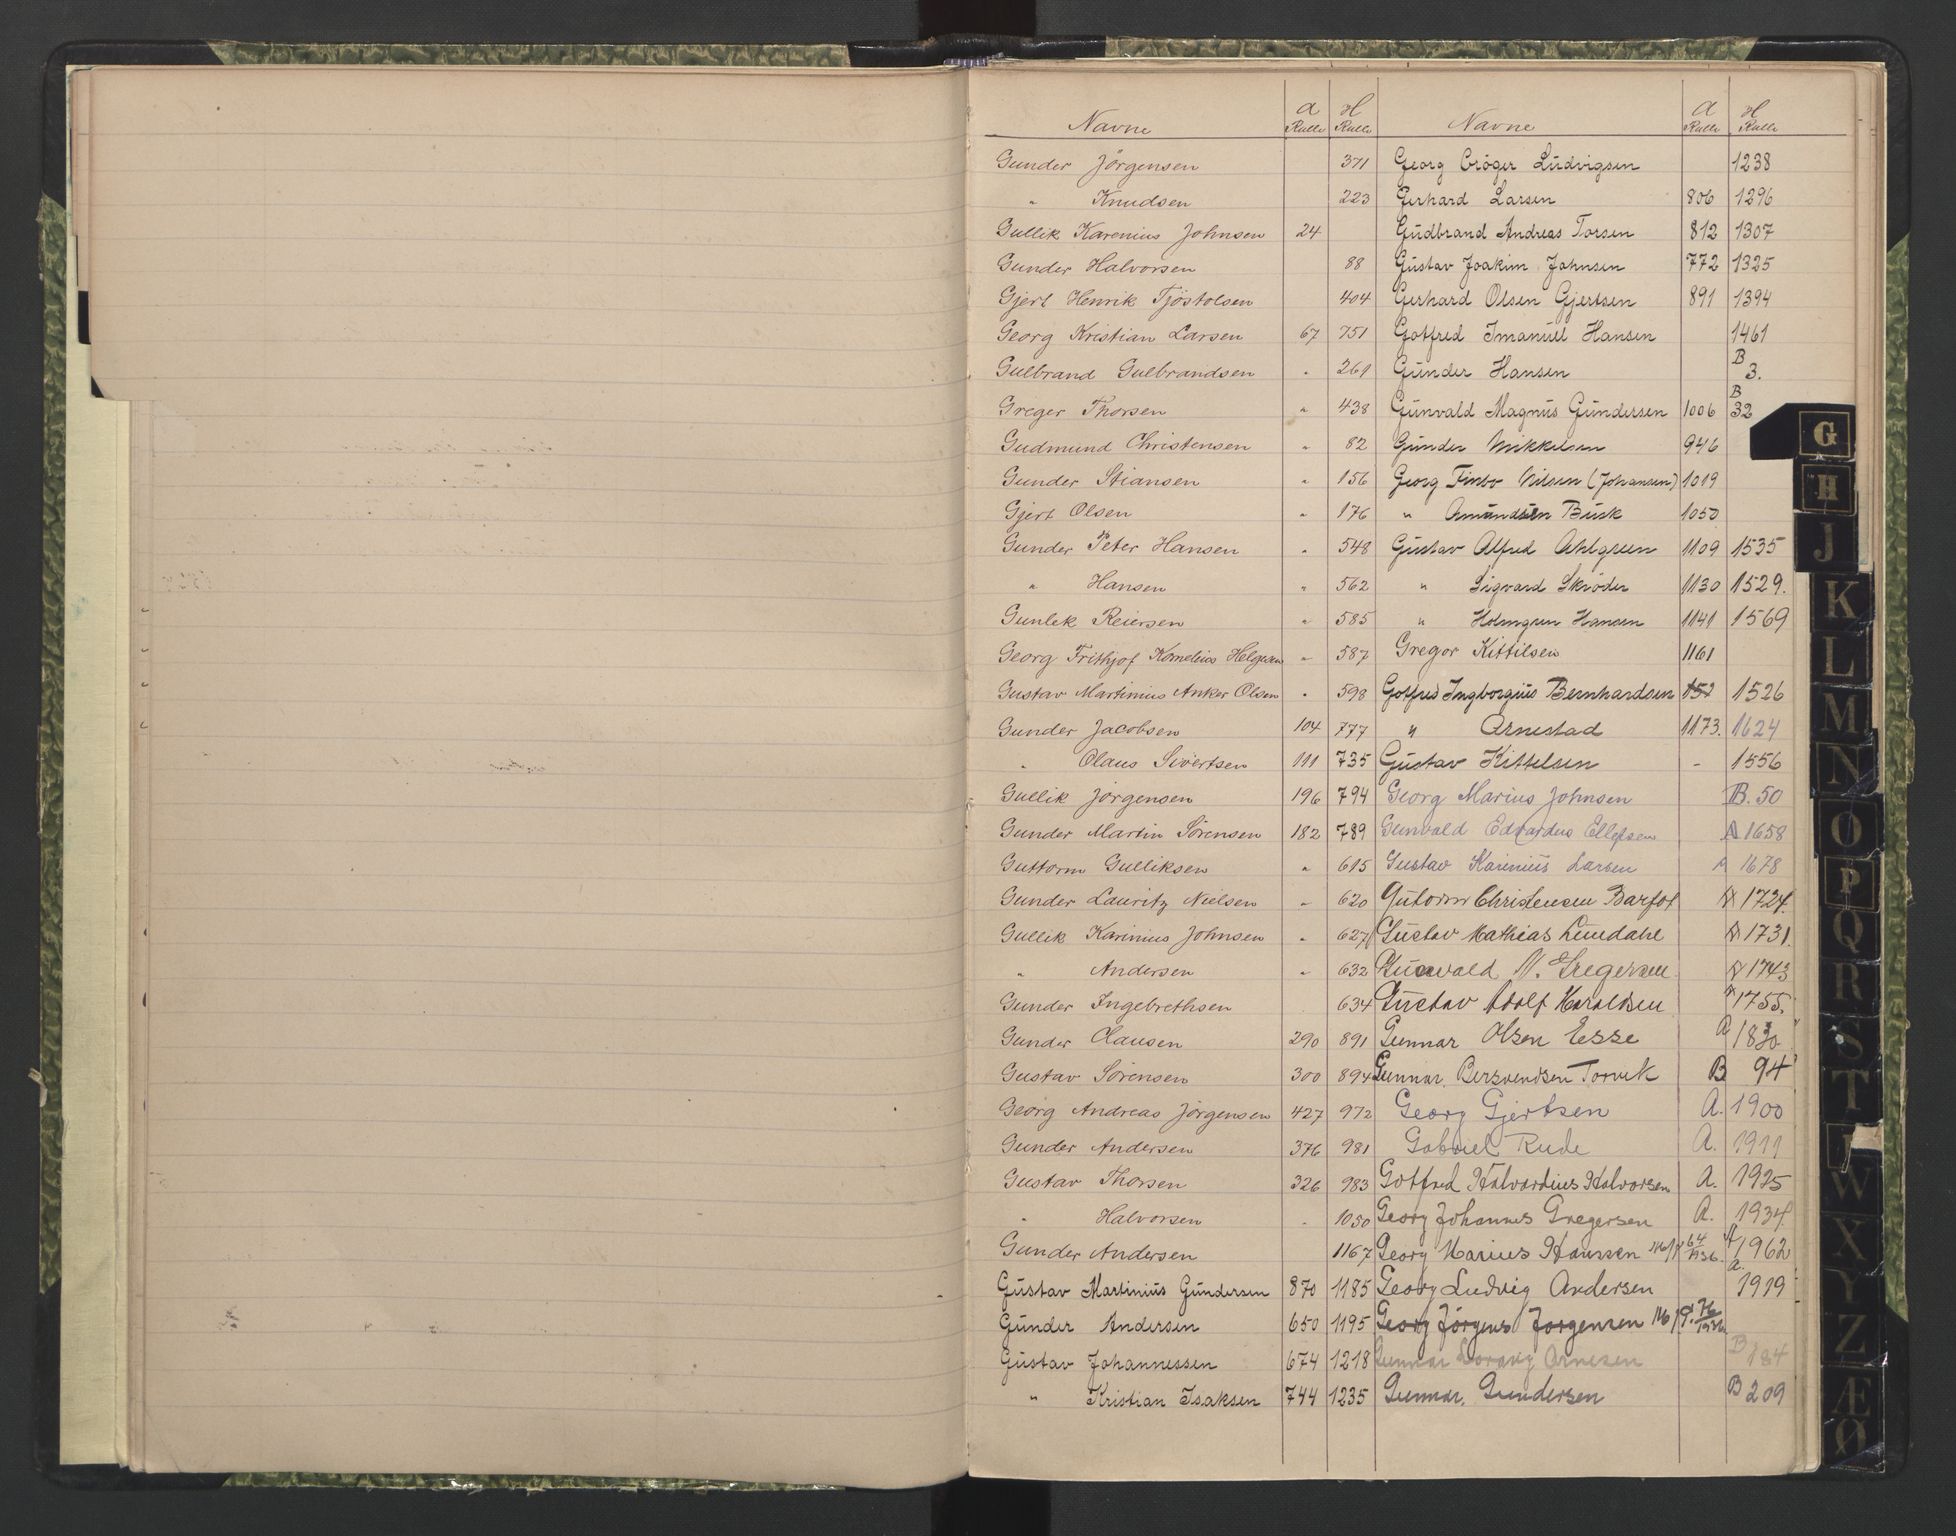 Navne A Rulle H Rulle
Gunder Jörgensen 371
" Knudsen 223
Gullik Karenius Johnsen 24
Gunder Halvorsen 88
Gjert Henrik Tjöstolsen 404
Georg Kristian Larsen 67 751
Gulbrand Gulbrandsen " 261
Greger Thorsen " 438
Gudmund Christensen " 82
Gunder Stiansen " 156
Gjert Olsen " 176
Gunder Peter Hansen " 548
" Hansen " 562
Gunlek Reiersen " 585
Georg Frithjof Kornelius Helgesen " 587
Gustav Martinius Anker Olsen " 598
Gunder Jacobsen 104 777
" Olaus Sivertsen 111 735
Gullik Jörgensen 196 794
Gunder Martin Sörensen 182 789
Guttorm Gulliksen " 615
Gunder Lauritz Nielsen " 620
Gullik Karinius Johnsen " 627
" Andersen " 632
Gunder Ingebrethsen 634
Gunder Clausen 290 891
Gustav Sörensen 300 894
Georg Andreas Jörgensen 427 972
Gunder Andersen 376 981
Gustav Thorsen 326 983
" Halvorsen . 1050
Gunder Andersen 1167
Gustav Martinius Gundersen 870 1185
Gunder Andersen 650 1195
Gustav Johannessen 674 1218
" Kristian Isaksen 744 1235
Navne A Rulle H Rulle
Georg Cröger Ludvigsen 1238
Gerhard Larsen 806 1296
Gudbrand Andreas Torsen 812 1307
Gustav Joakim Johnsen 772 1325
Gerhard Olsen Gjertsen 891 1394
Gotfred Imanuel Hansen 1461
Gunder Hansen B 3.
Gunvald Magnus Gundersen 1006 B 32
Gunder Mikkelsen 946
Georg Finbo Nilsen (Johansen) 1019
" Amundsen Busk 1050
Gustav Alfred Ahlgreen 1109 1535
" Sigvard Skröder 1130 1529.
" Holmgren Hansen 1141 1569
Gregor Kittilsen 1161
Gotfred Ingborgius Bernhardsen 152 1526
" Arnestad 1173. 1624
Gustav Kittelsen - 1556
Georg Marius Johnsen B. 50
Gunvald Edvardus Ellefsen A 1658
Gustav Karinius Larsen A 1678
Gutorm Christensen Barfot A 1724.
Gustav Mathias Lundahl A 1731.
Gunvald N. Gregersen A 1743
Gustav Adolf Haraldsen A 1755.
Gunnar Olsen Esse A 1830
Gunnar Bersvendsen Torvik B 94
Georg Gjertsen A. 1900
Gabriel Rude A. 1911
Gotfred Halvardius Halvorsen A. 1925
Georg Johannes Gregersen A. 1934.
Georg Marius Hanssen 64/1936. A 1962
Georg Ludvig Andersen a. 1919
Georg Jörgens Jorgensen 76/1936
Gunnar Arnesen B 184
Gunnar Gundersen B 209
G
H
J
K
L
M
N
O
P
Q
R
S
T
W
X
Y
Z
Æ
Ø